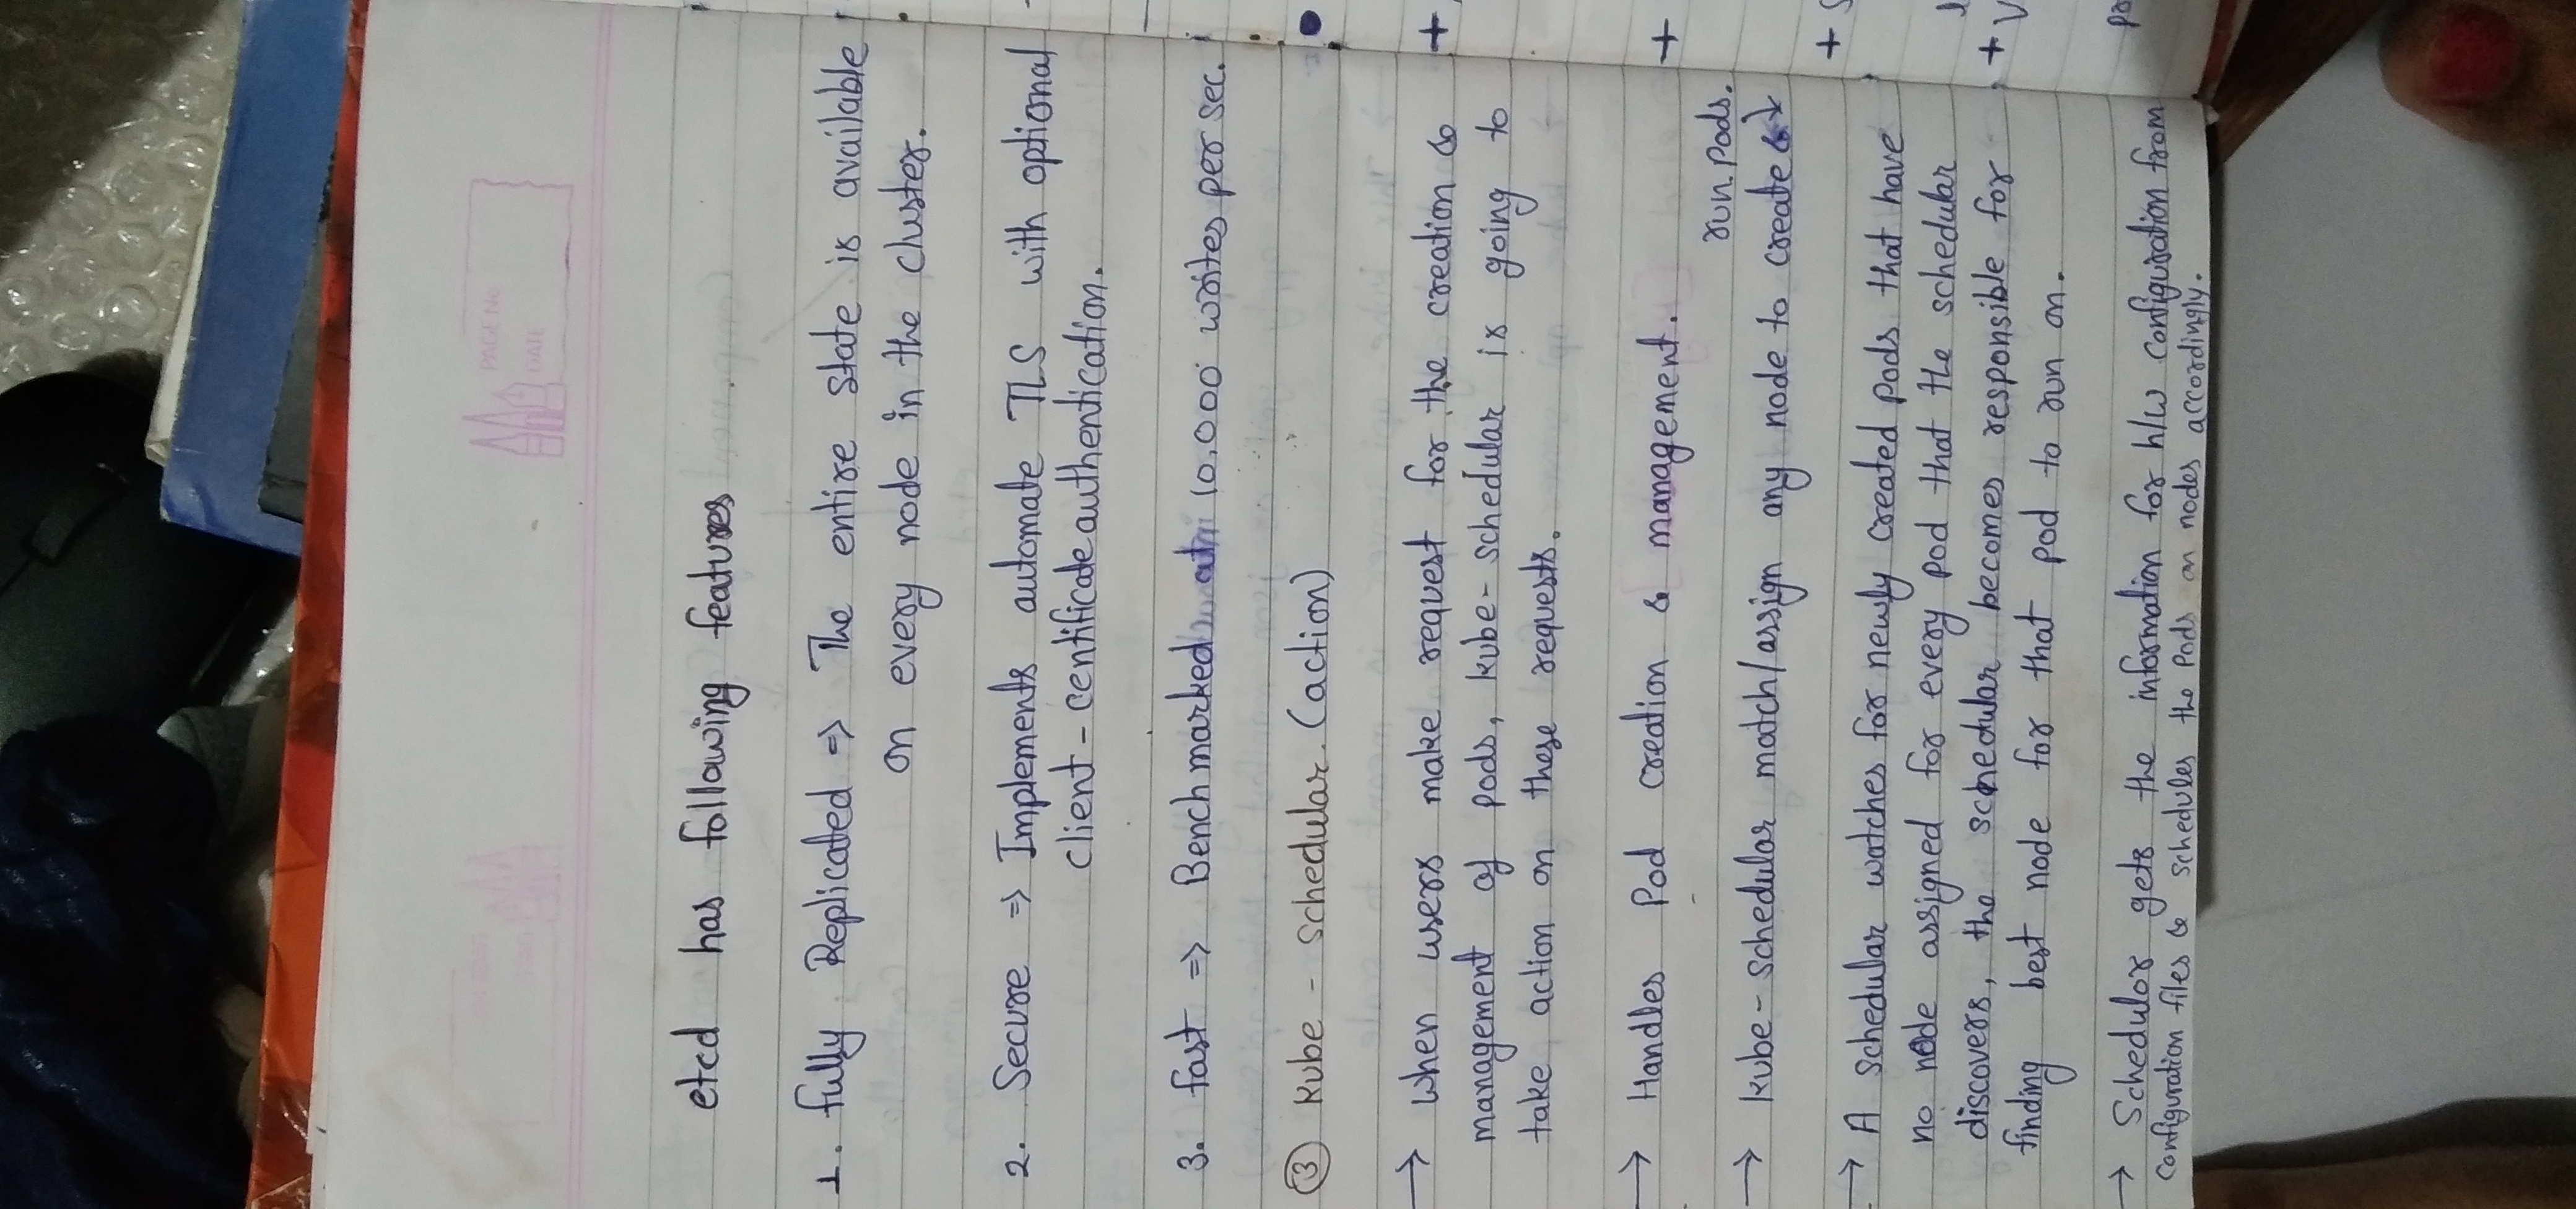 PAGE No
DATE
etcd has following features
1. fully Replicated => The entire state is available
on every node in the cluster.
2. Secure => Implements automate TLS with optional
client - centificate authentication.
3. fast => Benchmarked at 10,000 writes per sec.
③ Kube - schedular. (action)
→ When users make request for the creation &
management of pods, kube-schedular is going to
take action on these requests.
→ Handles Pod creation & management.
run pods.
→ kube-schedular match/assign any node to create & ↓
→ A schedular watches for newly created pods that have
no node assigned for every pod that the schedular
discovers, the schedular becomes responsible for
finding best node for that pod to run on.
→ Schedular gets the information for h/w configuration from
configuration files & schedules the Pods on nodes accordingly.